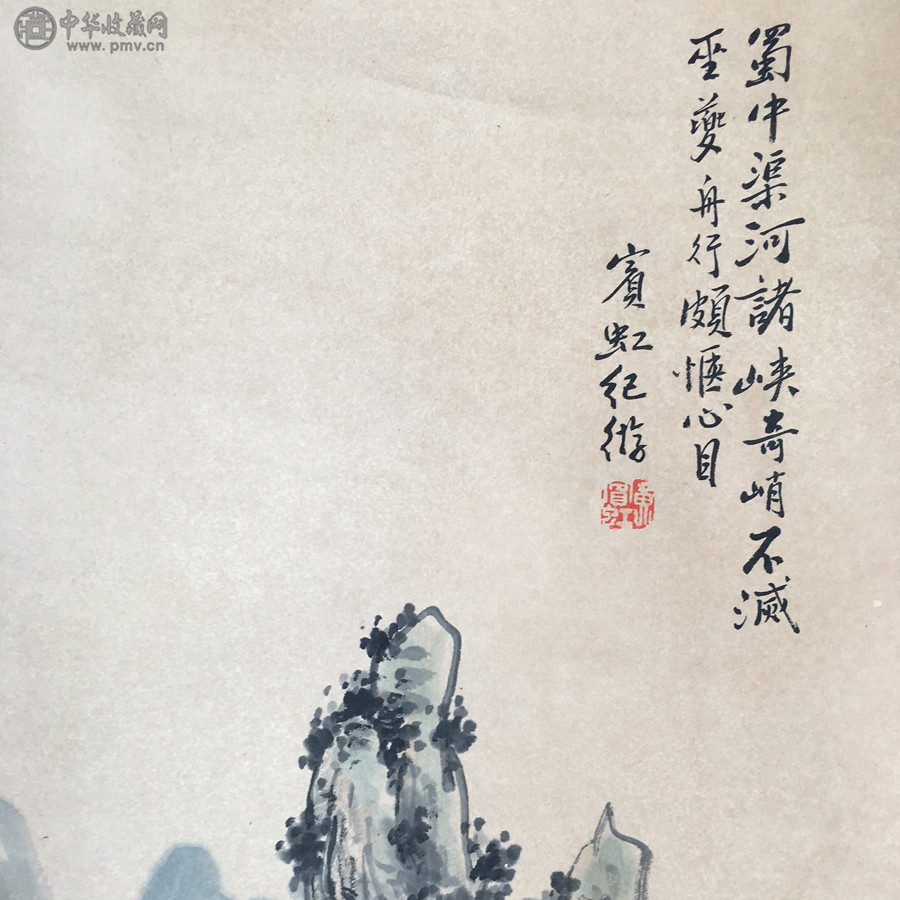 中华收藏网
www.pmv.cn
蜀中渠河諸峽奇峭不減
巫夔舟行頗愜心目
賓虹紀游
黃賓虹